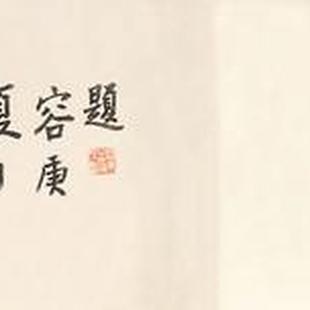 夏
容庚
題